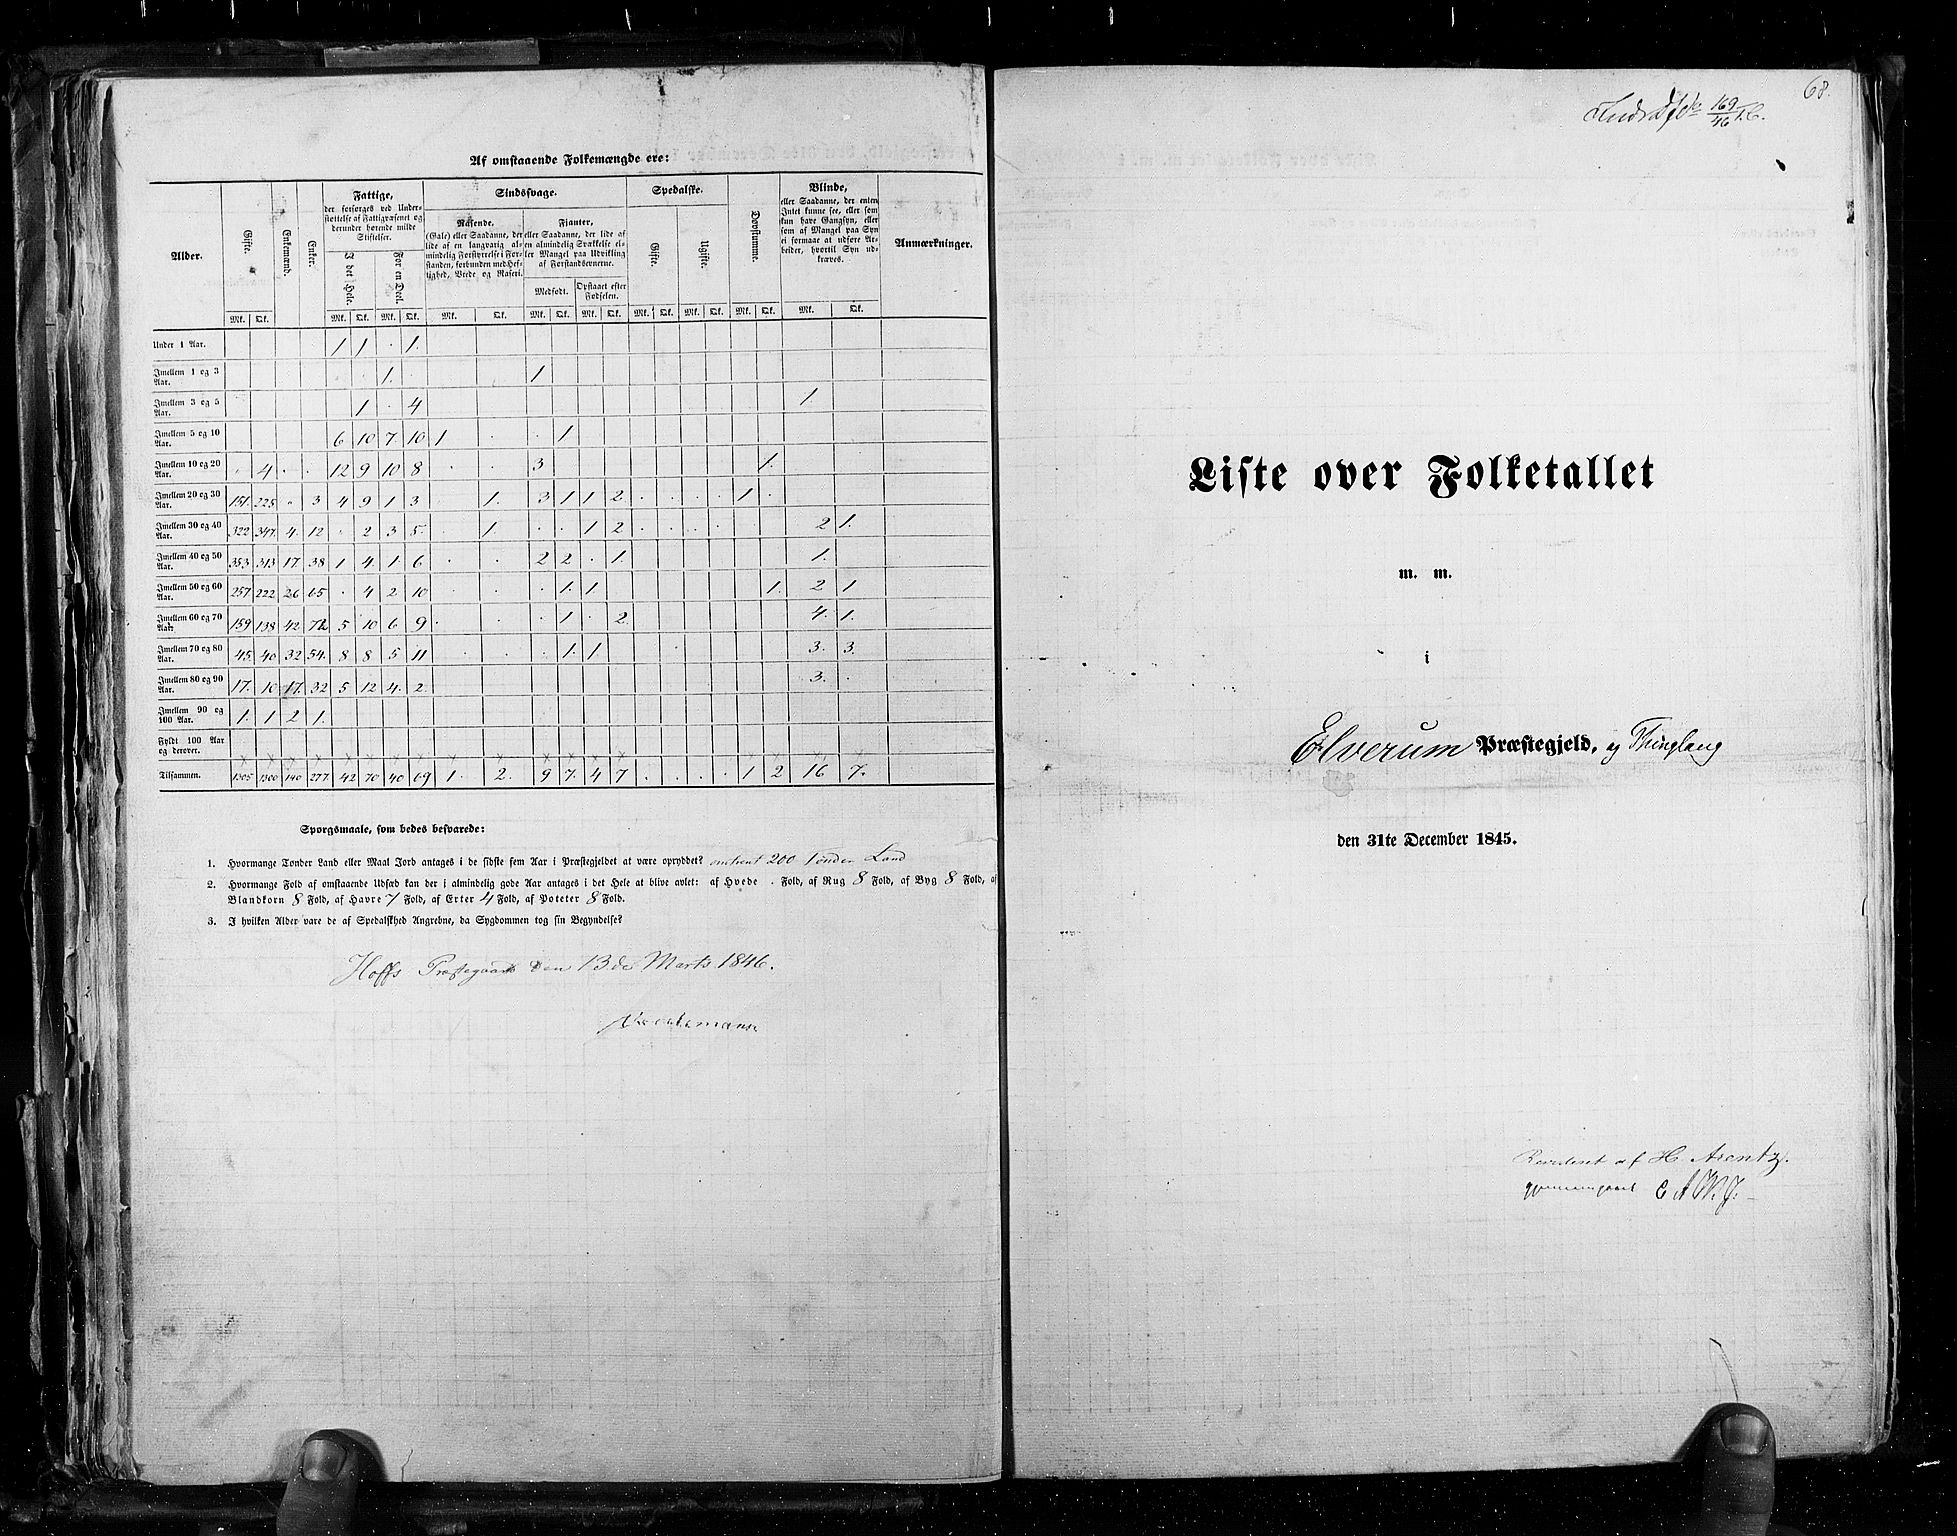 Af omstaaende Folkemængde ere:
Alder. Gifte. Enkemænd. Enker. Fattige, Sindssvage. Spedalske. Døvstumme. Blinde, Anmærkninger.
der forsørges ved Under-
støttelse af Fattigvæsenet og
derunder hørende milde
Stiftelser.
I det Hele. For en Deel.
Rasende.
(Gale) eller Saadanne, der
lide af en langvarig al-
mindelig Forstyrrelse i For-
standen, forbunden med Hef-
tighed, Vrede og Raseri.
Fjanter,
eller Saadanne, der lide af
en almindelig Svækkelse el-
ler Mangel paa Udvikling
af Forstandsevnerne.
Medfødt. Opstaaet efter Fødselen.
Gifte. Ugifte.
eller Saadanne, der enten
Intet kunne see, eller som
kun have Gangsyn, eller
som af Mangel paa Syn
ei formaae at udføre Ar-
beider, hvortil Syn ud-
kræves.
Mk. Qk. Mk. Qk. Mk. Qk. Mk. Qk. Mk. Qk. Mk. Qk. Mk. Qk. Mk. Qk. Mk. Qk. Mk. Qk.
Under 1 Aar. 1 1 . 1.
Imellem 1 og 3 Aar. . . 1. . 1
Imellem 3 og 5 Aar. 1 . 4 1.
Imellem 5 og 10 Aar. 6 10 7 10 1 . . 1
Imellem 10 og 20 Aar. . 4 . . 12 9 10 8 . . 3 1.
Imellem 20 og 30 Aar. 151. 225 . 3 4 9 1 3 . 1. 3 1 1 2 . . . . 1 .
Imellem 30 og 40 Aar. 322 347. 4. 12 . 2 3 5. . 1. . . 1 2 . . . . 2 1.
Imellem 40 og 50 Aar. 353 313 17 38 1 4. 1. 6 . . 2 2 . 1. 1.
Imellem 50 og 60 Aar. 257 222 26 65 . 4 2 10 . . . 1. 1 1. 2 1
Imellem 60 og 70 Aar. 159 138 42 72 5 10 6 9 . . . 1 . 2 4. 1.
Imellem 70 og 80 Aar. 45. 40 32 54. 8 8 5 11 . . . 1. 1 3. 3.
Imellem 80 og 90 Aar. 17. 10 17. 32 5 12 4. 2. 3. .
Imellem 90 og 100 Aar. 1. 1 2 1.
Fyldt 100 Aar og derover.
Tilsammen. 1305 1300 140 277. 42 70 40 69 1. 2. 9 7. 4 7 . . . . 1 2 16 7.
Spørgsmaale, som bedes besvarede:
1. Hvormange Tønder Land eller Maal Jord antages i de sidste fem Aar i Præstegjeldet at være opryddet? omtrent 200 Tønder Land
2. Hvormange Fold af omstaaende Udsæd kan der i almindelig gode Aar antages i det Hele at blive avlet: af Hvede . Fold, af Rug 8 Fold, af Byg 8 Fold, af
Blandkorn 8 Fold, af Havre 7 Fold, af Erter 4 Fold, af Poteter 8 Fold.
3. I hvilken Alder vare de af Spedalskhed Angrebne, da Sygdommen tog sin Begyndelse?
Hoffs Præstegaard den 13de Marts 1846.
68.
169/46
Liste over Folketallet
m. m.
i
Elverum Præstegjeld, og Thinglaug
den 31te December 1845.
Revideret af H. Arentz.
gjennemgaaet